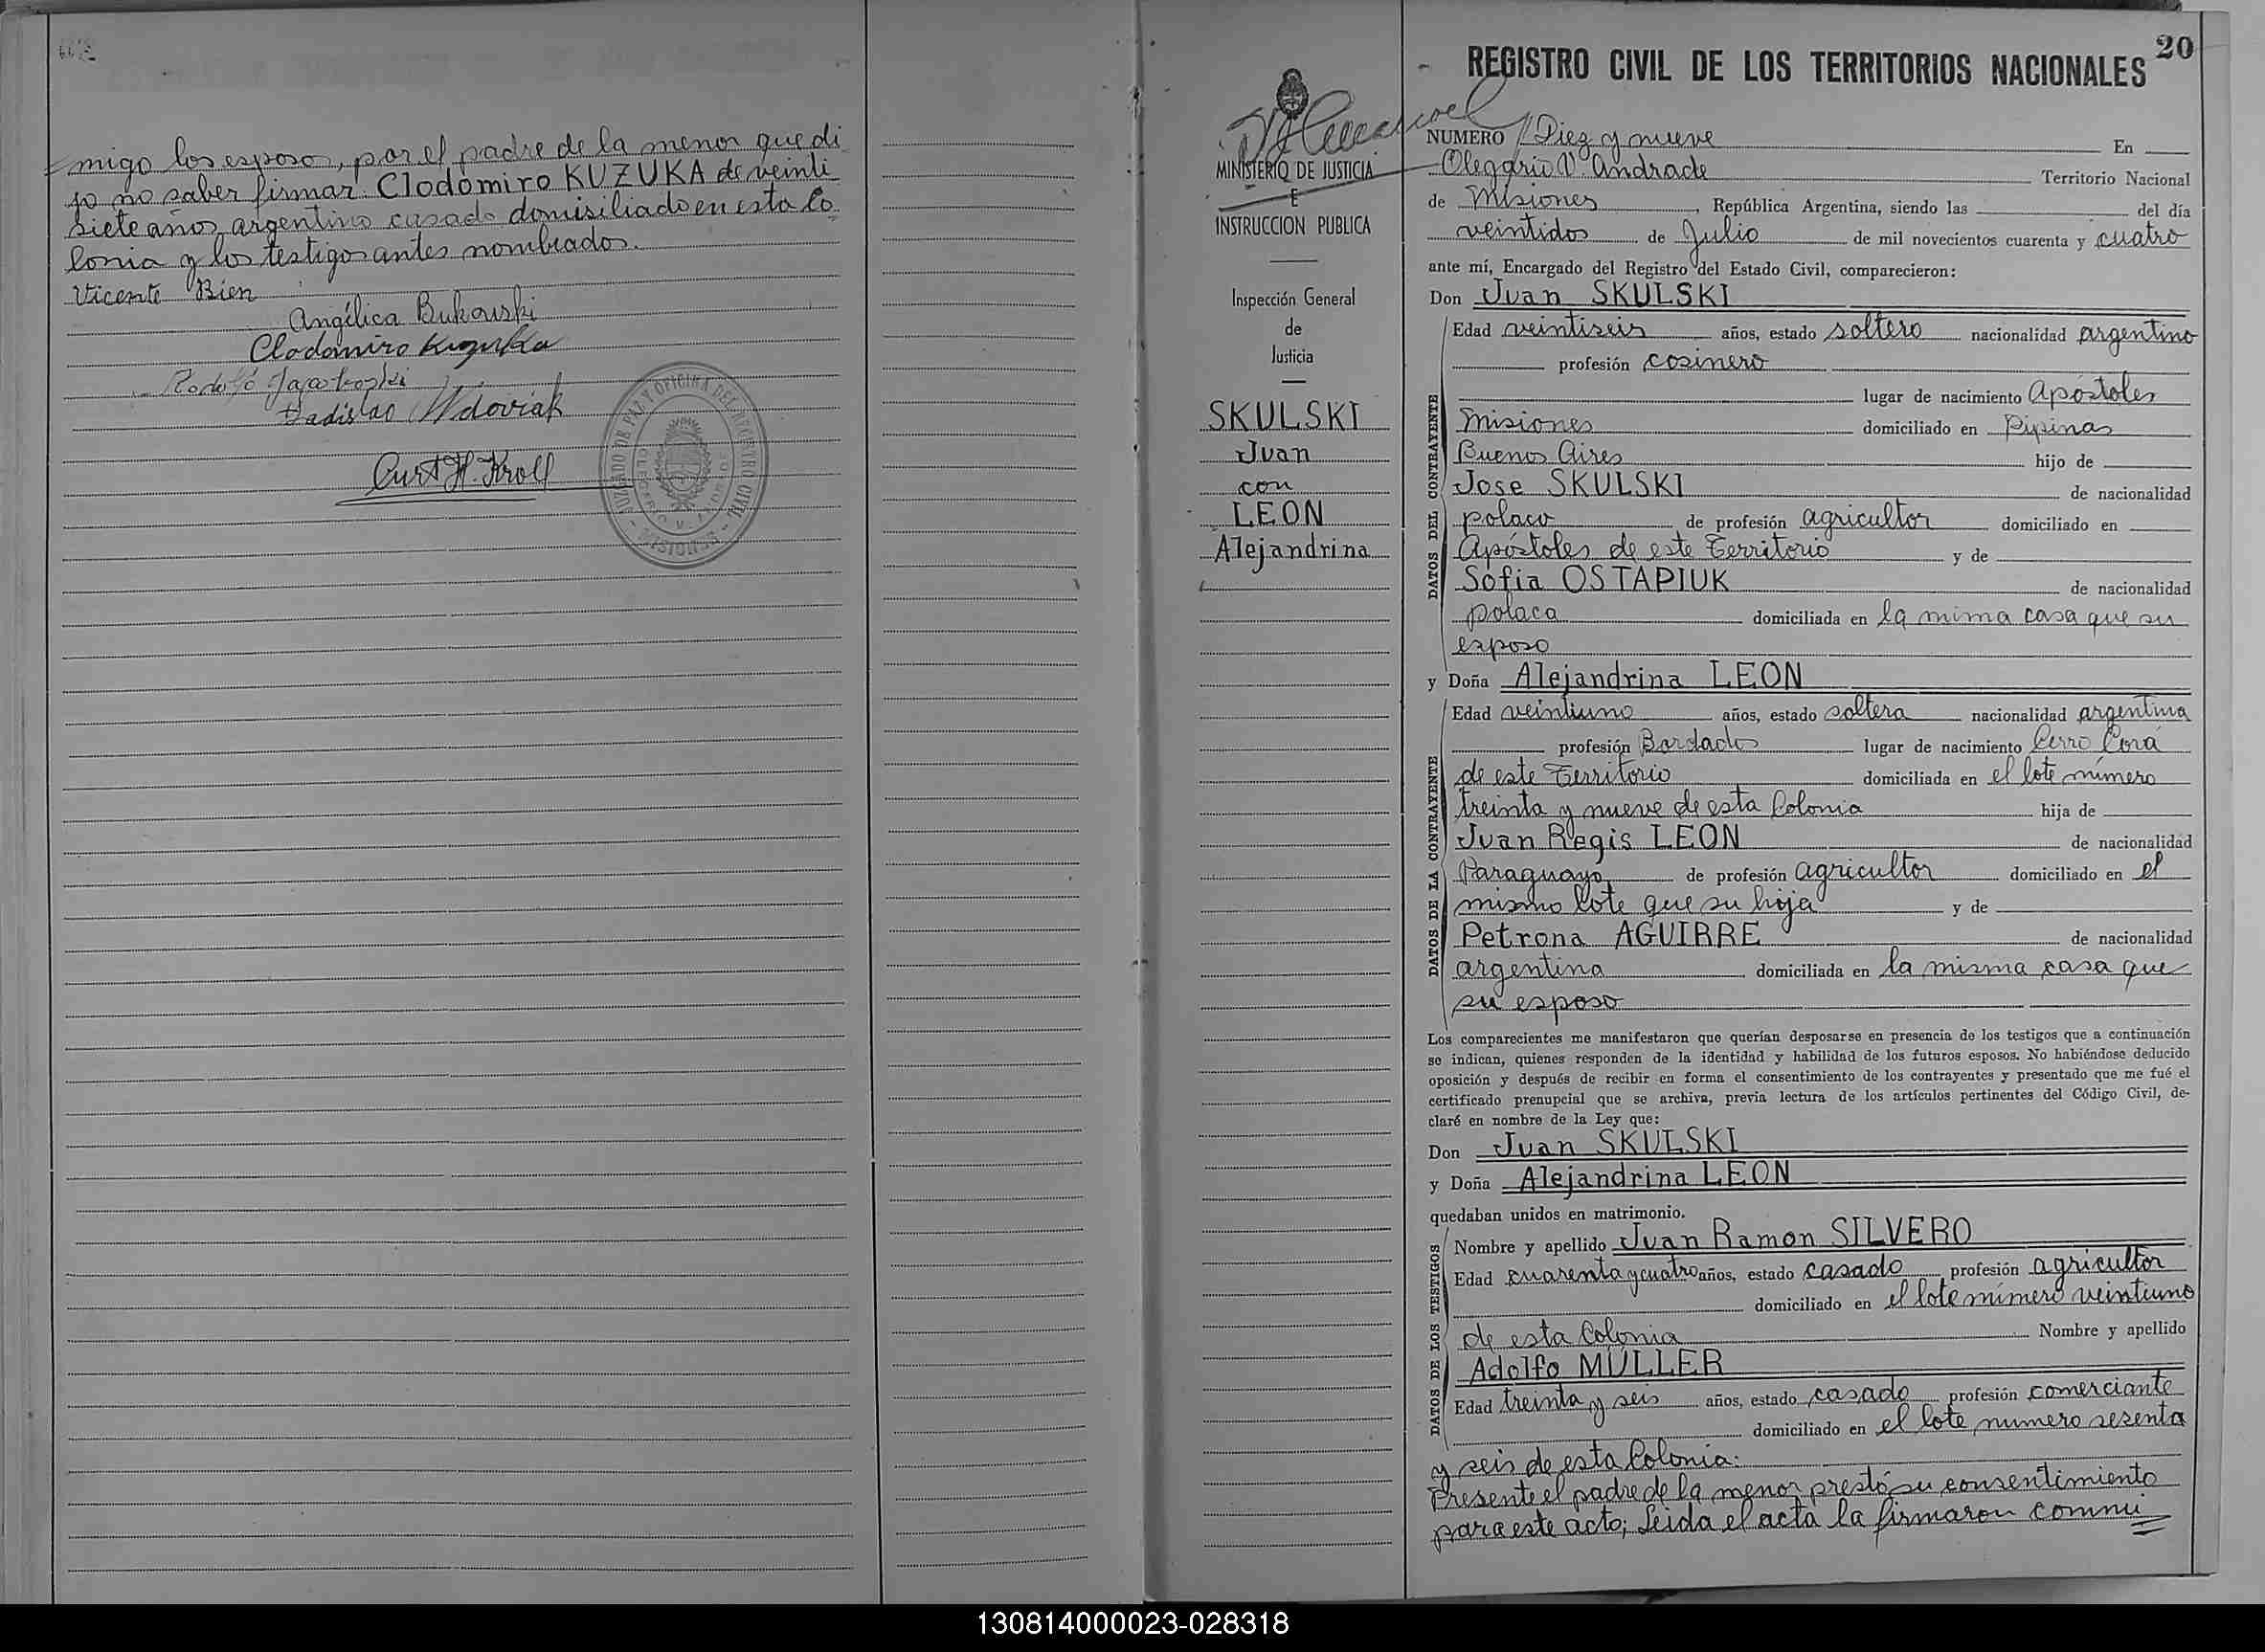 migo los esposos, por el padre de la menor que di
jo no saber firmar Clodomiro KUZUKA de veinti
siete años, argentino casado domisiliado en esta Co
lonia y los testigos antes nombrados.
Vicente Bien
Angélica Bukowski
Clodomiro Kuzuka
Ladislao Wdoviak
Curt H. Kroll
JUZGADO DE PAZ Y OFICINA DEL REGISTRO CIVIL
MISIONES
MINISTERIO DE JUSTICIA
E
INSTRUCCION PUBLICA
Inspección General
de
Justicia
SKULSKI
Juan
con
LEON
Alejandrina
20
REGISTRO CIVIL DE LOS TERRITORIOS NACIONALES
NUMERO Diez y nueve En
Olegario V. Andrade Territorio Nacional
de Misiones, República Argentina, siendo las del día
veintidos de Julio de mil novecientos cuarenta y cuatro
ante mí, Encargado del Registro del Estado Civil, comparecieron:
Don Juan SKULSKI
Edad veintiseis años, estado soltero nacionalidad argentino
profesión cosinero
lugar de nacimiento Apóstoles
Misiones domiciliado en Pipinas
Buenos Aires hijo de
Jose SKULSKI de nacionalidad
polaco de profesión agricultor domiciliado en
Apóstoles de este Territorio y de
Sofia OSTAPIUK de nacionalidad
polaca domiciliada en la mima casa que su
esposo
DATOS DEL CONTRAYENTE
y Doña Alejandrina LEON
Edad veintiuno años, estado soltera nacionalidad argentina
profesión Bordados lugar de nacimiento Cerro Corá
de este Territorio domiciliada en el lote número
treinta y nueve de esta Colonia hija de
Juan Regis LEON de nacionalidad
Paraguayo de profesión agricultor domiciliado en el
mismo lote que su hija y de
Petrona AGUIRRE de nacionalidad
argentina domiciliada en la misma casa que
su esposo
DATOS DE LA CONTRAYENTE
Los comparecientes me manifestaron que querían desposarse en presencia de los testigos que a continuación
se indican, quienes responden de la identidad y habilidad de los futuros esposos. No habiéndose deducido
oposición y después de recibir en forma el consentimiento de los contrayentes y presentado que me fué el
certificado prenupcial que se archiva, previa lectura de los artículos pertinentes del Código Civil, de-
claré en nombre de la Ley que:
Don Juan SKULSKI
y Doña Alejandrina LEON
quedaban unidos en matrimonio.
Nombre y apellido Juan Ramon SILVERO
Edad cuarenta y cuatro años, estado casado profesión agricultor
domiciliado en el lote número veintiuno
de esta Colonia Nombre y apellido
Adolfo MÜLLER
Edad treinta y seis años, estado casado profesión comerciante
domiciliado en el lote numero sesenta
DATOS DE LOS TESTIGOS
y seis de esta Colonia:
Presente el padre de la menor prestó su consentimiento
para este acto; Leida el acta la firmaron conmi
130814000023-028318